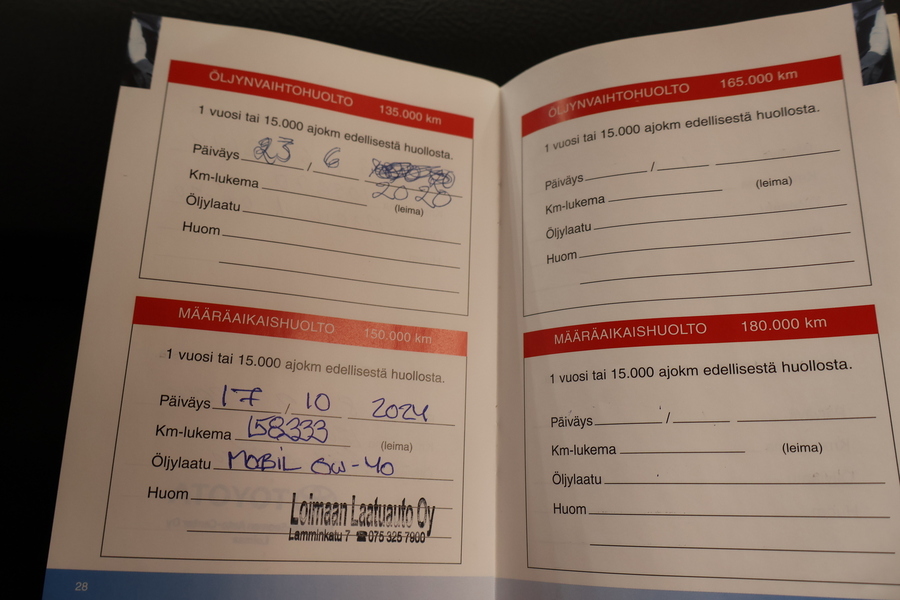 ÖLJYNVAIHTOHUOLTO 135.000 km
1 vuosi tai 15.000 ajokm edellisestä huollosta.
Päiväys 23 / 6
2020
Km-lukema
(leima)
Öljylaatu
Huom
MÄÄRÄAIKAISHUOLTO 150.000 km
1 vuosi tai 15.000 ajokm edellisestä huollosta.
Päiväys 17 / 10 2024
Km-lukema 158333
(leima)
Öljylaatu MOBIL 0W-40
Huom
Loimaan Laatuauto Oy
Lamminkatu 7 ☎075 325 7900
28
ÖLJYNVAIHTOHUOLTO 165.000 km
1 vuosi tai 15.000 ajokm edellisestä huollosta.
Päiväys /
Km-lukema (leima)
Öljylaatu
Huom
MÄÄRÄAIKAISHUOLTO 180.000 km
1 vuosi tai 15.000 ajokm edellisestä huollosta.
Päiväys /
Km-lukema (leima)
Öljylaatu
Huom